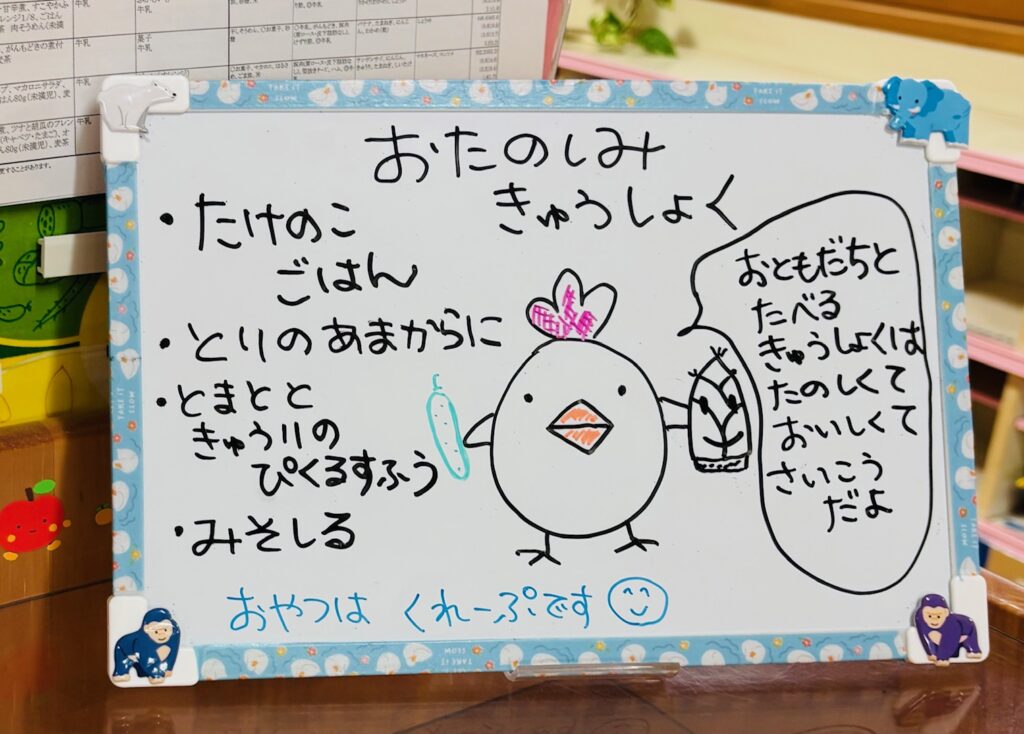 おたのしみ
きゅうしょく
・たけのこ
ごはん
・とりのあまからに
・とまとと
きゅうりの
ぴくるすふう
・みそしる
おやつは くれーぷです
おともだちと
たべる
きゅうしょくは
たのしくて
おいしくて
さいこう
だよ
TAKE IT
SLOW
牛乳
菓子
牛乳
牛乳
牛乳